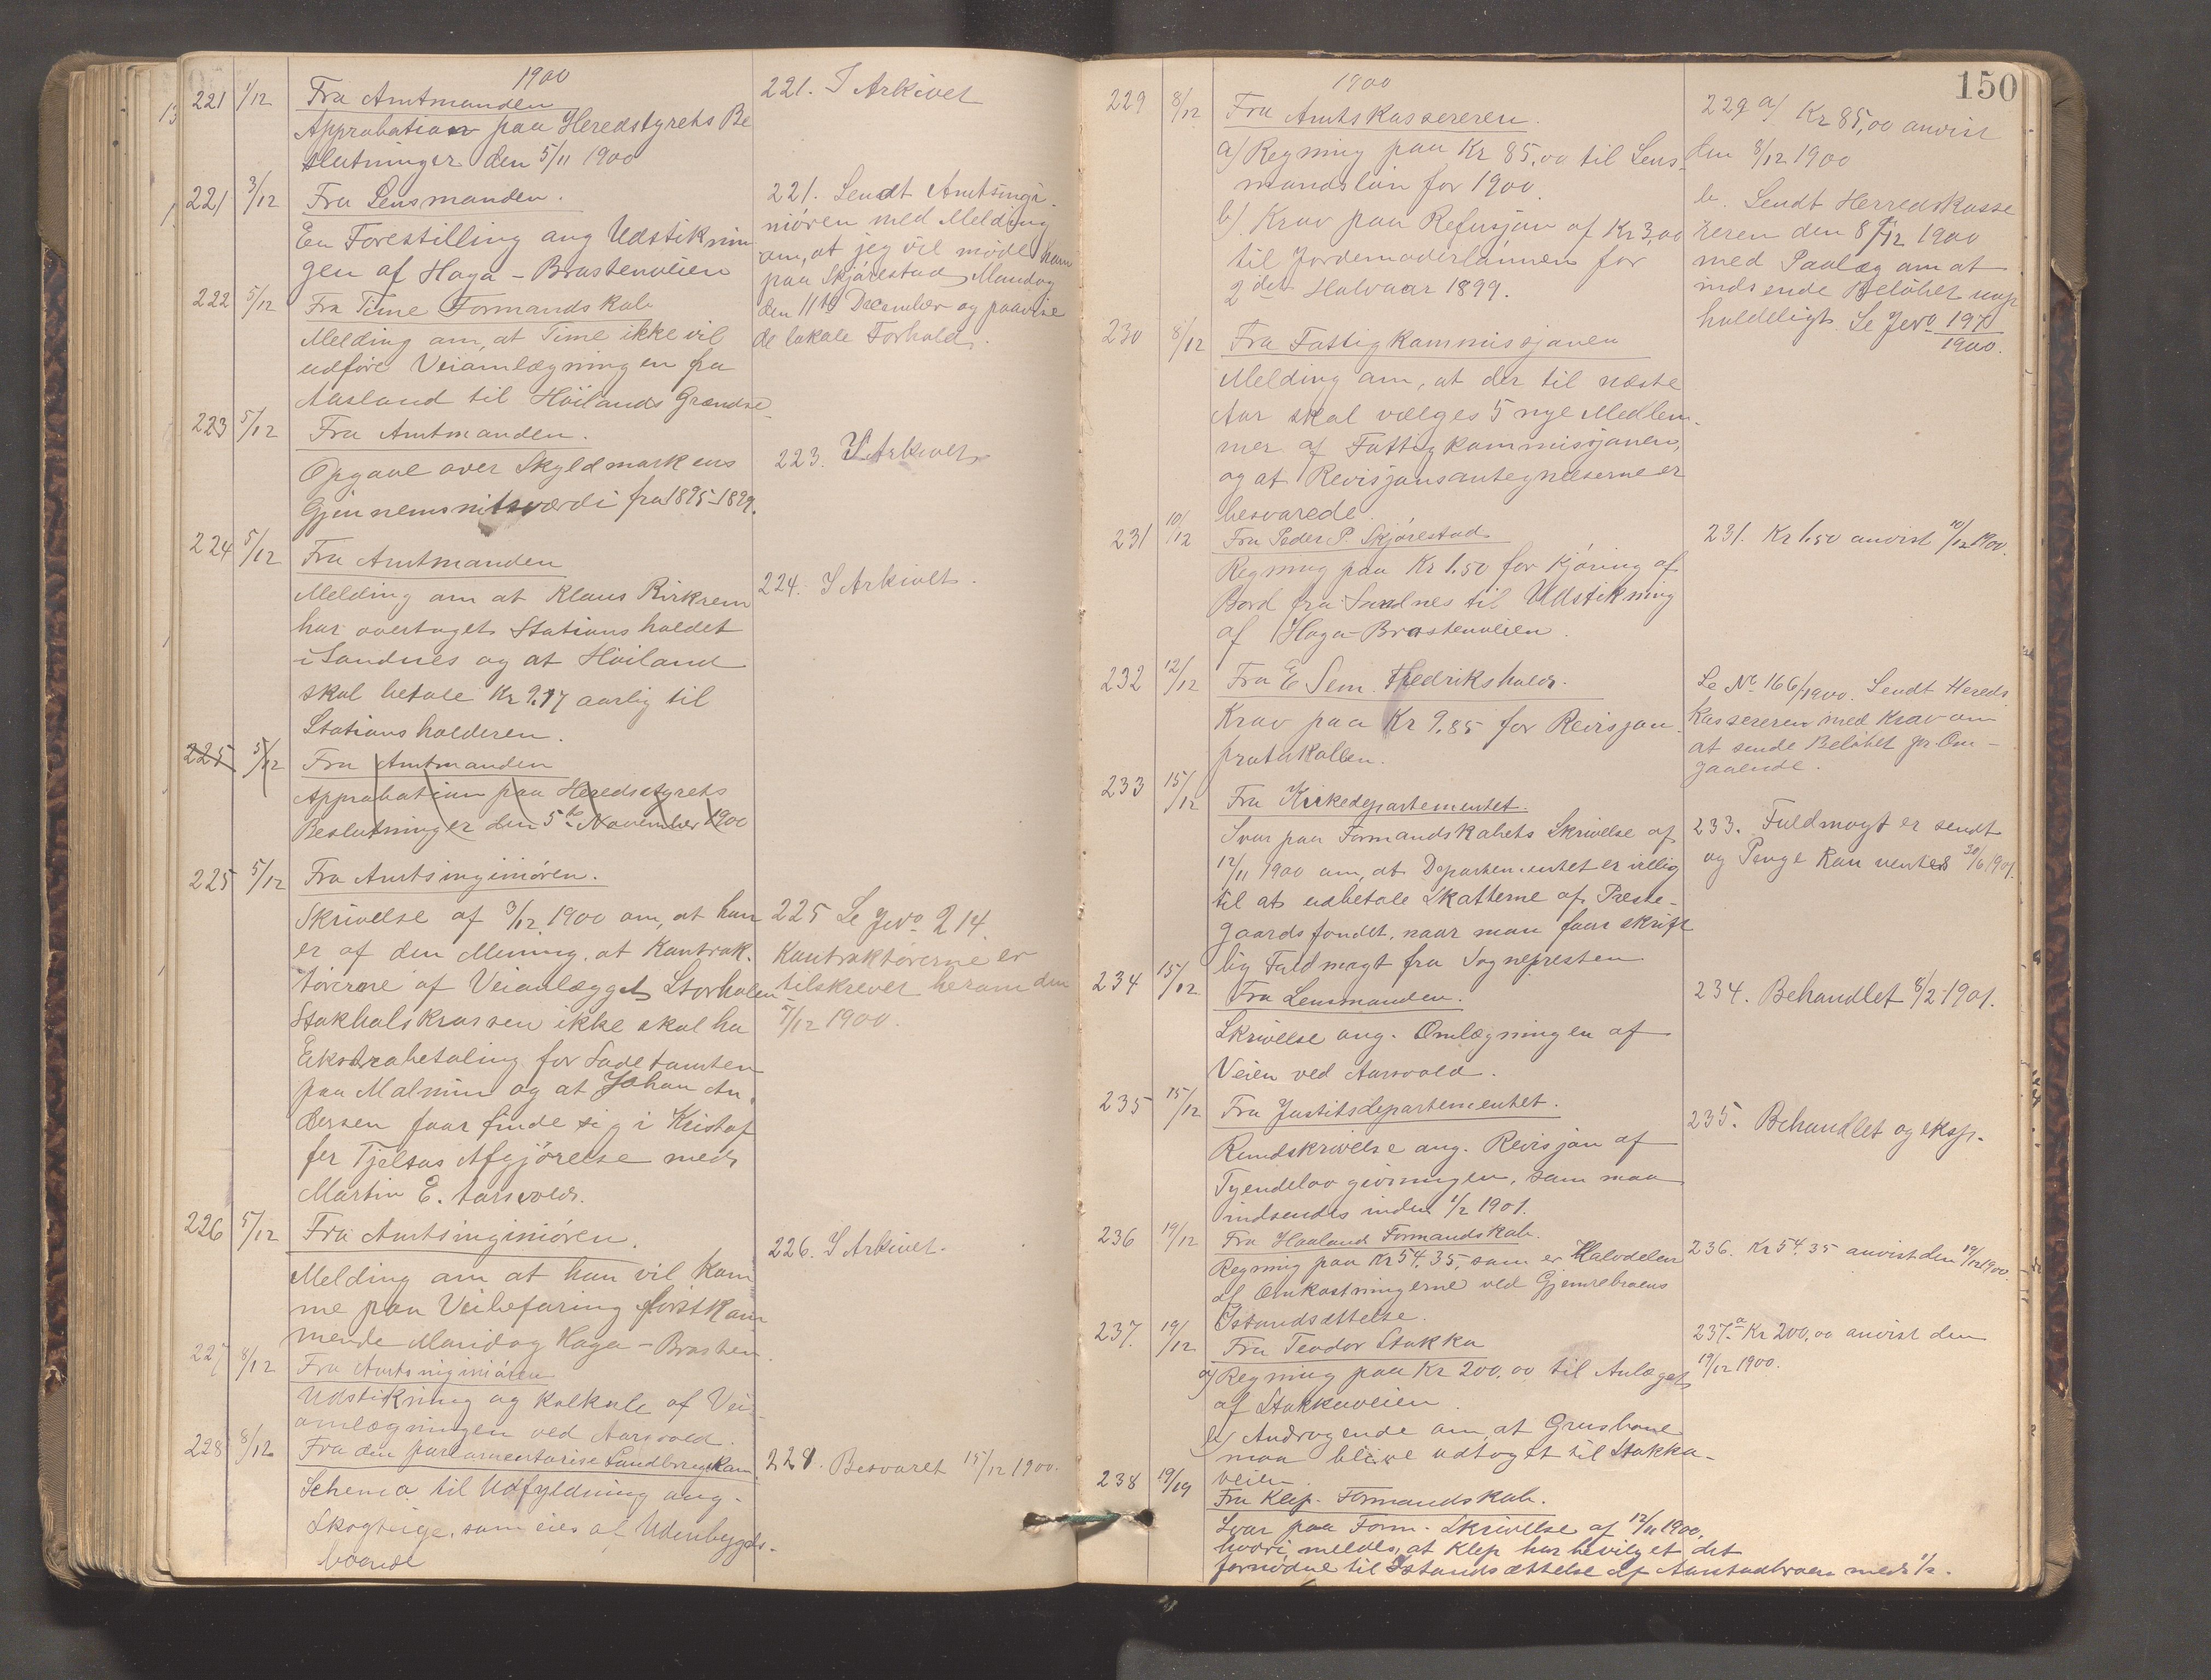 1900
221 1/12 Fra Amtmanden
Approbation paa Heredstyrets Be
slutninger den 5/11 1900
221. I Arkivet
221 3/12 Fra Lensmanden.
En Forestilling ang Udstiknin
gen af Haga - Brastenveien
221. Sendt Amtsingi-
niören med Melding
om, at jeg vil möde ham
paa Skjörestad Mandag
den 11te December og paavise
de lokale Forhold.
222 5/12 Fra Time Formandskab
Melding om, at Time ikke vil
udföre Veiomlægningen fra
Aasland til Höilands Grændse
223 5/12 Fra Amtmanden.
Opgave over Skyldmarkens
Gjennemsnitsværdi fra 1895-1899.
223. I Arkivet
224 5/12 Fra Amtmanden
Melding om at Klaus Rirkrem
har overtaget Stationsholdet
i Sandnes og at Höiland
skal betale Kr 9.17 aarlig til
Stationsholderen.
224. I Arkivet.
225 5/12 Fra Amtmanden
Approbation paa Heredsstyrets
Beslutninger den 5te November 1900
225 5/12 Fra Amtsinginiören.
Skrivelse af 3/12 1900 om, at han
er af den Mening, at Kontrak-
törerne af Veianlægget Storholen-
Stokholskrossen ikke skal ha
Ekstrabetaling for Sadetomten
paa Malmin og at Johan An
dersen faar finde sig i Kristof
fer Tjeltas Afgjörelse med
Martin E. Aarsvold.
225 Se Jvo. 214.
Kontraktörerne er
tilskrevet herom den
5/12 1900.
226 5/12 Fra Amtsinginiören.
Melding om at han vil kom
me paa Veibefaring förstkom
mende Mandag Haga - Brasten.
226. I Arkivet.
227 8/12 Fra Amtsinginiören
Udstikning og Kalkule af Vei
omlægningen ved Aarsvold.
228 8/12 Fra den parlamentariske Landbrugskom.
Schema til Udfyldning ang.
Skogteige, som eies af Udenbygds-
boende
228. Besvaret 15/12 1900.
150
1900
229 8/12 Fra Amtskassereren.
a) Regning paa Kr 85,00 til Lens-
mandslön for 1900
b). Krav paa Refusjon af Kr 3,00
til Jordemoderlönnen for
2det Halvaar 1899.
229 a/ Kr 85,00 anvist
den 8/12 1900
b. Sendt Herredskasse
reren den 8/12 1900
med Paalæg om at
indsende Belöbet uop
holdeligt. Se Jevo 197/1900.
230 8/12 Fra Fattigkommissjonen
Melding om, at der til næste
Aar skal vælges 5 nye Medlem-
mer af Fattigkommissjonen,
og at Revisjonsantegnelserne er
besvarede
231 10/12 Fra Peder P. Skjörestad
Regning paa Kr 1.50 for Kjöring af
Bord fra Sandnes til Udstikning
af Haga-Brastenveien.
231. Kr 1.50 anvist 10/12 1900.
232 12/12 Fra E Sem Fredrikshald.
Krav paa Kr 9.85 for Revisjon-
protokollen.
Se No 166/1900. Sendt Hereds
kassereren med Krav om
at sende Belöbet pr. Om-
gaaende.
233 15/12 Fra Kirkedepartementet.
Svar paa Formandskabets Skrivelse af
12/11 1900 om, at Departementet er villig
til at udbetale Skatterne af Preste-
gaardsfondet, naar man faar skrift
lig Fuldmagt fra Sognepresten
233. Fuldmagt er sendt
og Penge kan ventes 30/6 1901.
234 15/12 Fra Lensmanden.
Skrivelse ang. Omlægningen af
Veien ved Aarsvold.
234. Behandlet 8/2 1901.
235 15/12 Fra Justitsdepartementet.
Rundskrivelse ang. Revisjon af
Tyendelovgivningen, som maa
indsendes inden 1/2 1901.
235. Behandlet og eksp.
236 19/12 Fra Haaland Formandskab.
Regning paa Kr 54,35, som er Halvdelen
af Omkostningerne ved Gjemrebroens
Istandsættelse.
236. Kr 54.35 anvist den 19/12 1900.
237. 19/12 Fra Teodor Stokka
a) Regning paa Kr 200,00 til Anlæget
af Stokkaveien.
b) Andragende om, at Grusbane
maa blive udtaget til Stokka-
veien
237.a Kr 200,00 anvist den
19/12 1900.
238 19/19 Fra Klep. Formandskab.
Svar paa Form. Skrivelse af 12/11 1900,
hvori meldes, at Klep har bevilget det
fornödne til Istandsættelse af Aarstadbroen med 1/2.